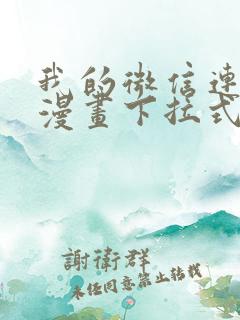 我的微信連
漫畫下拉式
謝衛群
未经同意禁止转载